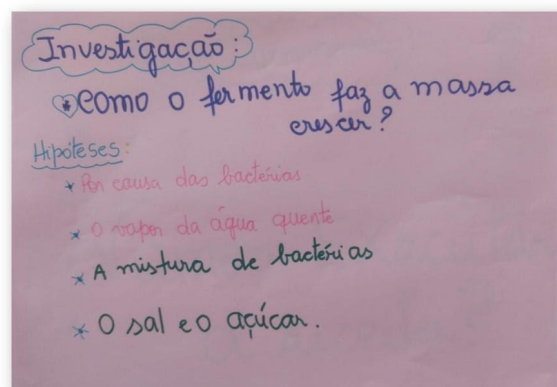 Investigação:
Como o fermento faz a massa
crescer?
Hipóteses:
* Por causa das bactérias
* O vapor da água quente
* A mistura de bactérias
* O sal e o açúcar.